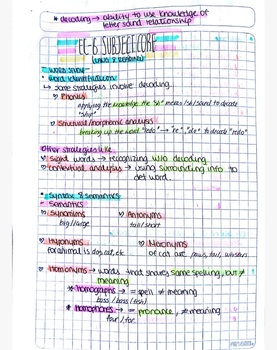 * decoding → ability to use knowledge of
letter sound relationship
EC-6 SUBJECT CORE
(ELAR & READING)
WORD STUDY
• Word identification:
↳ some strategies involve decoding
♡ Phonics
applying the knowledge the "sh" makes /sh/ sound to decode
"ship"
♡ Structural/morphemic analysis
breaking up the word "redo" → "re", "do" to decode "redo"
Other strategies like
♡ sight words → recognizing w/o decoding
♡ contextual analysis → using surrounding info to
det word.
• Syntax & Semantics
- Semantics
♡ Synonyms
♡ Antonyms
big/large
tall/short
♡ Hyponyms
♡ Meronyms
for animal is dog, cat, etc
of cat are paws, tail, whiskers
♡ Homonyms → words that share same spelling, but ≠
meaning
* Homographs → = spell ≠ meaning
bass / bass (fish)
* Homophones → = pronunc, ≠ meaning
four / for